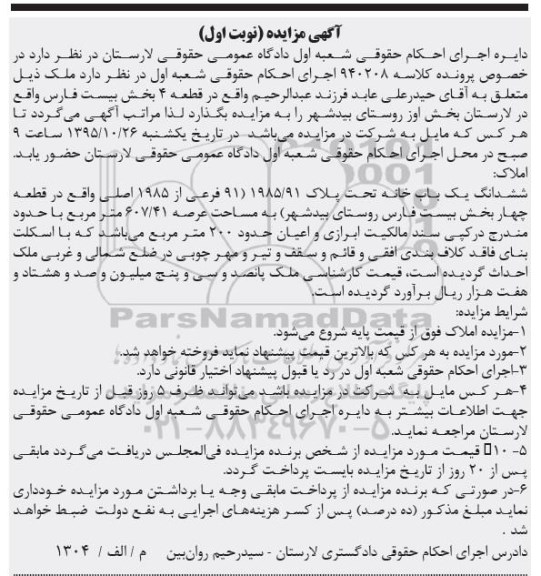 آگهی مزایده (نوبت اول)
دایره اجرای احکام حقوقی شعبه اول دادگاه عمومی حقوقی لارستان در نظر دارد در
خصوص پرونده کلاسه ۹۴۰۲۰۸ اجرای احکام حقوقی شعبه اول در نظر دارد ملک ذیل
متعلق به آقای حیدرعلی عابد فرزند عبدالرحیم واقع در قطعه ۴ بخش بیست فارس واقع
در لارستان بخش اوز روستای بیدشهر را به مزایده بگذارد لذا مراتب آگهی می‌گردد تا
هر کس که مایل به شرکت در مزایده می‌باشد در تاریخ یکشنبه ۱۳۹۵/۱۰/۲۶ ساعت ۹
صبح در محل اجرای احکام حقوقی شعبه اول دادگاه عمومی حقوقی لارستان حضور یابد.
املاک:
ششدانگ یک باب خانه تحت پلاک ۱۹۸۵/۹۱ (۹۱ فرعی از ۱۹۸۵ اصلی واقع در قطعه
چهار بخش بیست فارس روستای بیدشهر) به مساحت عرصه ۶۰۷/۴۱ متر مربع با حدود
مندرج درکپی سند مالکیت ابرازی و اعیان حدود ۲۰۰ متر مربع می‌باشد که با اسکلت
بنای فاقد کلاف بندی افقی و قائم و سقف و تیر و مهر چوبی در ضلع شمالی و غربی ملک
احداث گردیده است، قیمت کارشناسی ملک پانصد و سی و پنج میلیون و صد و هشتاد و
هفت هزار ریال برآورد گردیده است.
شرایط مزایده:
۱-مزایده املاک فوق از قیمت پایه شروع می‌شود.
۲-مورد مزایده به هر کس که بالاترین قیمت پیشنهاد نماید فروخته خواهد شد.
۳-اجرای احکام حقوقی شعبه اول در رد یا قبول پیشنهاد اختیار قانونی دارد.
۴-هر کس مایل به شرکت در مزایده باشد می‌تواند ظرف ۵ روز قبل از تاریخ مزایده
جهت اطلاعات بیشتر به دایره اجرای احکام حقوقی شعبه اول دادگاه عمومی حقوقی
لارستان مراجعه نماید.
۵- ۱۰ قیمت مورد مزایده از شخص برنده مزایده فی‌المجلس دریافت می‌گردد مابقی
پس از ۲۰ روز از تاریخ مزایده بایست پرداخت گردد.
۶-در صورتی که برنده مزایده از پرداخت مابقی وجه یا برداشتن مورد مزایده خودداری
نماید مبلغ مذکور (ده درصد) پس از کسر هزینه‌های اجرایی به نفع دولت ضبط خواهد
شد .
دادرس اجرای احکام حقوقی دادگستری لارستان - سیدرحیم روان‌بین م / الف / ۱۳۰۴
ParsNamadData
۰۲۱-۸۸۳۴۹۶۷۰-۵